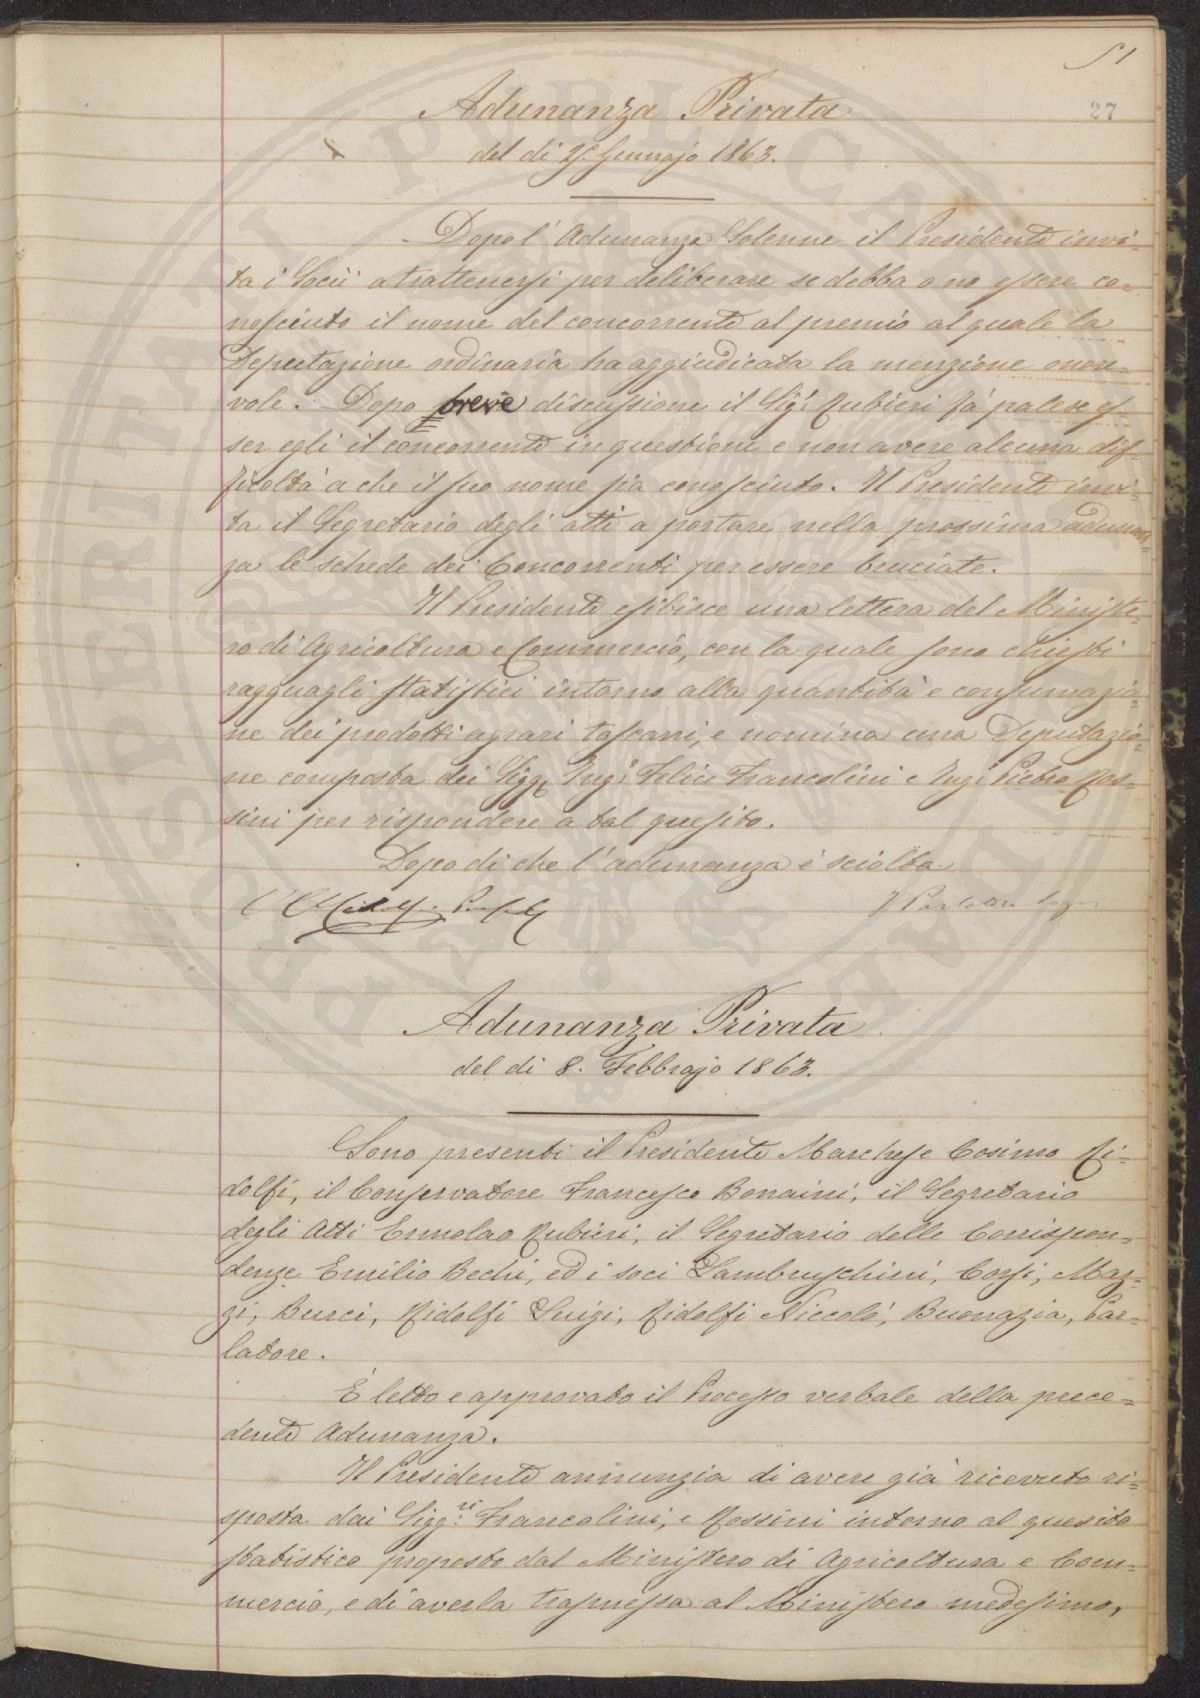 51
27
Adunanza Privata
del dì Gennajo 1863.
Dopo l' Adunanza Solenne il Presidente invi-
ta i Socii a trattenersi per deliberare se debba o no essere co-
nosciuto il nome del concorrente al premio al quale la
Deputazione ordinaria ha aggiudicata la menzione onore-
vole. Dopo breve discussione il Sig.r Rubieri fà palese es-
ser egli il concorrente in questione e non avere alcuna dif-
ficoltà a che il suo nome sia conosciuto. Il Presidente invi-
ta il Segretario degli atti a portare nella prossima adunan-
za le schede dei Concorrenti per essere bruciate.
Il Presidente esibisce una lettera del Ministe-
ro di Agricoltura e Commercio, con la quale sono chiesti
ragguagli statistici intorno alla quantità e consumazio-
ne dei prodotti agrari toscani, e nomina una Deputazio-
ne composta dei Sigg. Ing.e Felice Francolini e Ing.e Pietro Ros-
sini per rispondere a tal quesito.
Dopo di che l'adunanza è sciolta
C Ridolfi
Adunanza Privata
del dì 8. Febbrajo 1863.
Sono presenti il Presidente Marchese Cosimo Ri-
dolfi, il Conservatore Francesco Bonaini, il Segretario
degli Atti Ermolao Rubieri, il Segretario delle Corrispon-
denze Emilio Bechi, ed i soci Lambruschini, Corsi, Maz-
zi, Burci, Ridolfi Luigi, Ridolfi Niccolò, Buonazia, Par-
latore.
È letto e approvato il Processo verbale della prece-
dente Adunanza.
Il Presidente annunzia di avere già ricevuto ri-
sposta dai Sigg.ri Francolini, e Rossini intorno al quesito
statistico proposto dal Ministero di Agricoltura e Com-
mercio, e di averla trasmessa al Ministero medesimo,
PERITATI PUBLICAE